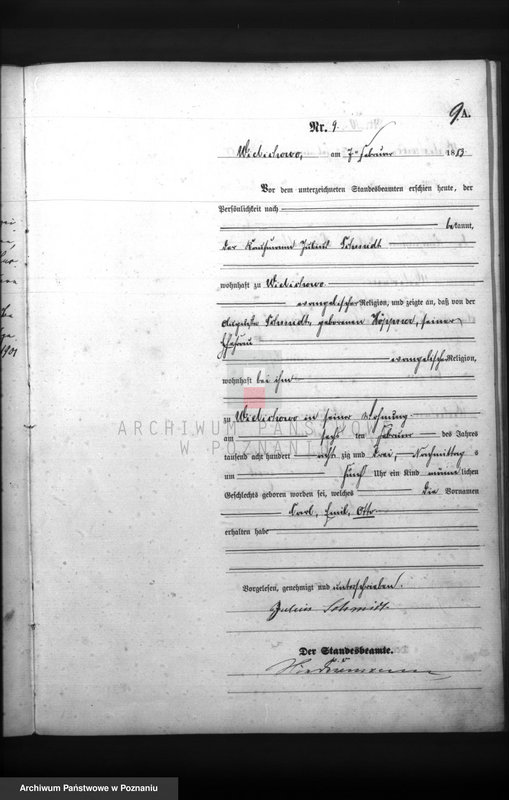 9. A.
Nr. 9.
am 7ten Februar 1883
Vor dem unterzeichneten Standesbeamten erschien heute, der
Persönlichkeit nach
bekannt,
der Kaufmann Julius Schmidt
wohnhaft zu
evangelischer Religion, und zeigte an, daß von der
Auguste Schmidt, geborenen Höppner, seiner
Ehefrau
evangelischer Religion,
wohnhaft bei ihm
zu in seiner Wohnung
am sechs ten Februar des Jahres
tausend acht hundert acht zig und drei, Nachmittag s
um fünf Uhr ein Kind männlichen
Geschlechts geboren worden sei, welches die Vornamen
Carl, Emil, Otto
erhalten habe
Vorgelesen, genehmigt und unterschrieben.
Julius Schmidt
Der Standesbeamte.
ARCHIWUM PAŃSTWOWE
W POZNANIU
1901
Archiwum Państwowe w Poznaniu